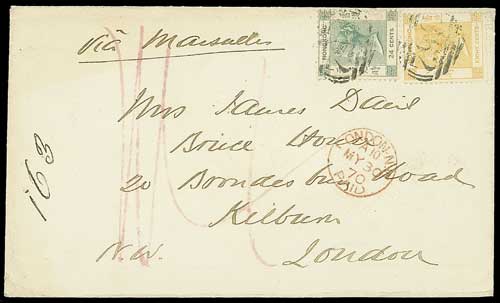 via Marseilles
HONG KONG
24 CENTS
EIGHT CENTS
Mrs James
Bruce House
20 Road
Kilburn
N.W. London
LONDON N.W
MY 30
70
PAID
163